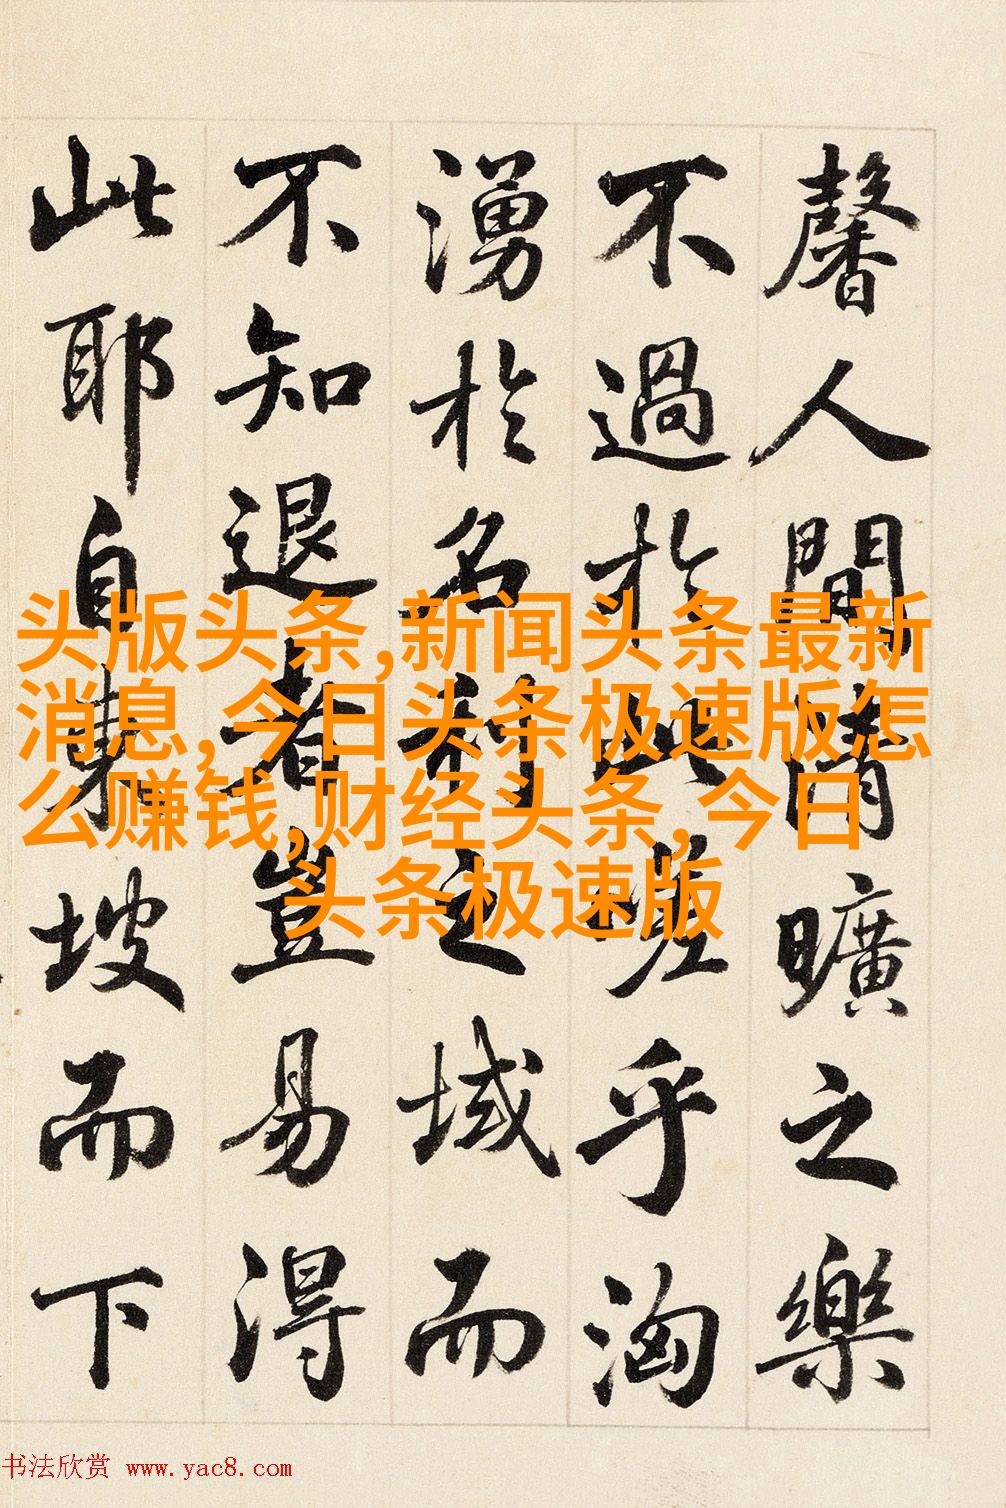 馨人間清曠之樂
不過於此嗟乎洶
湧於名利之域而
不知退者豈易得
此耶自東坡而下
头版头条,新闻头条最新
消息,今日头条极速版怎
么赚钱,财经头条,今日
头条极速版
书法欣赏 www.yac8.com